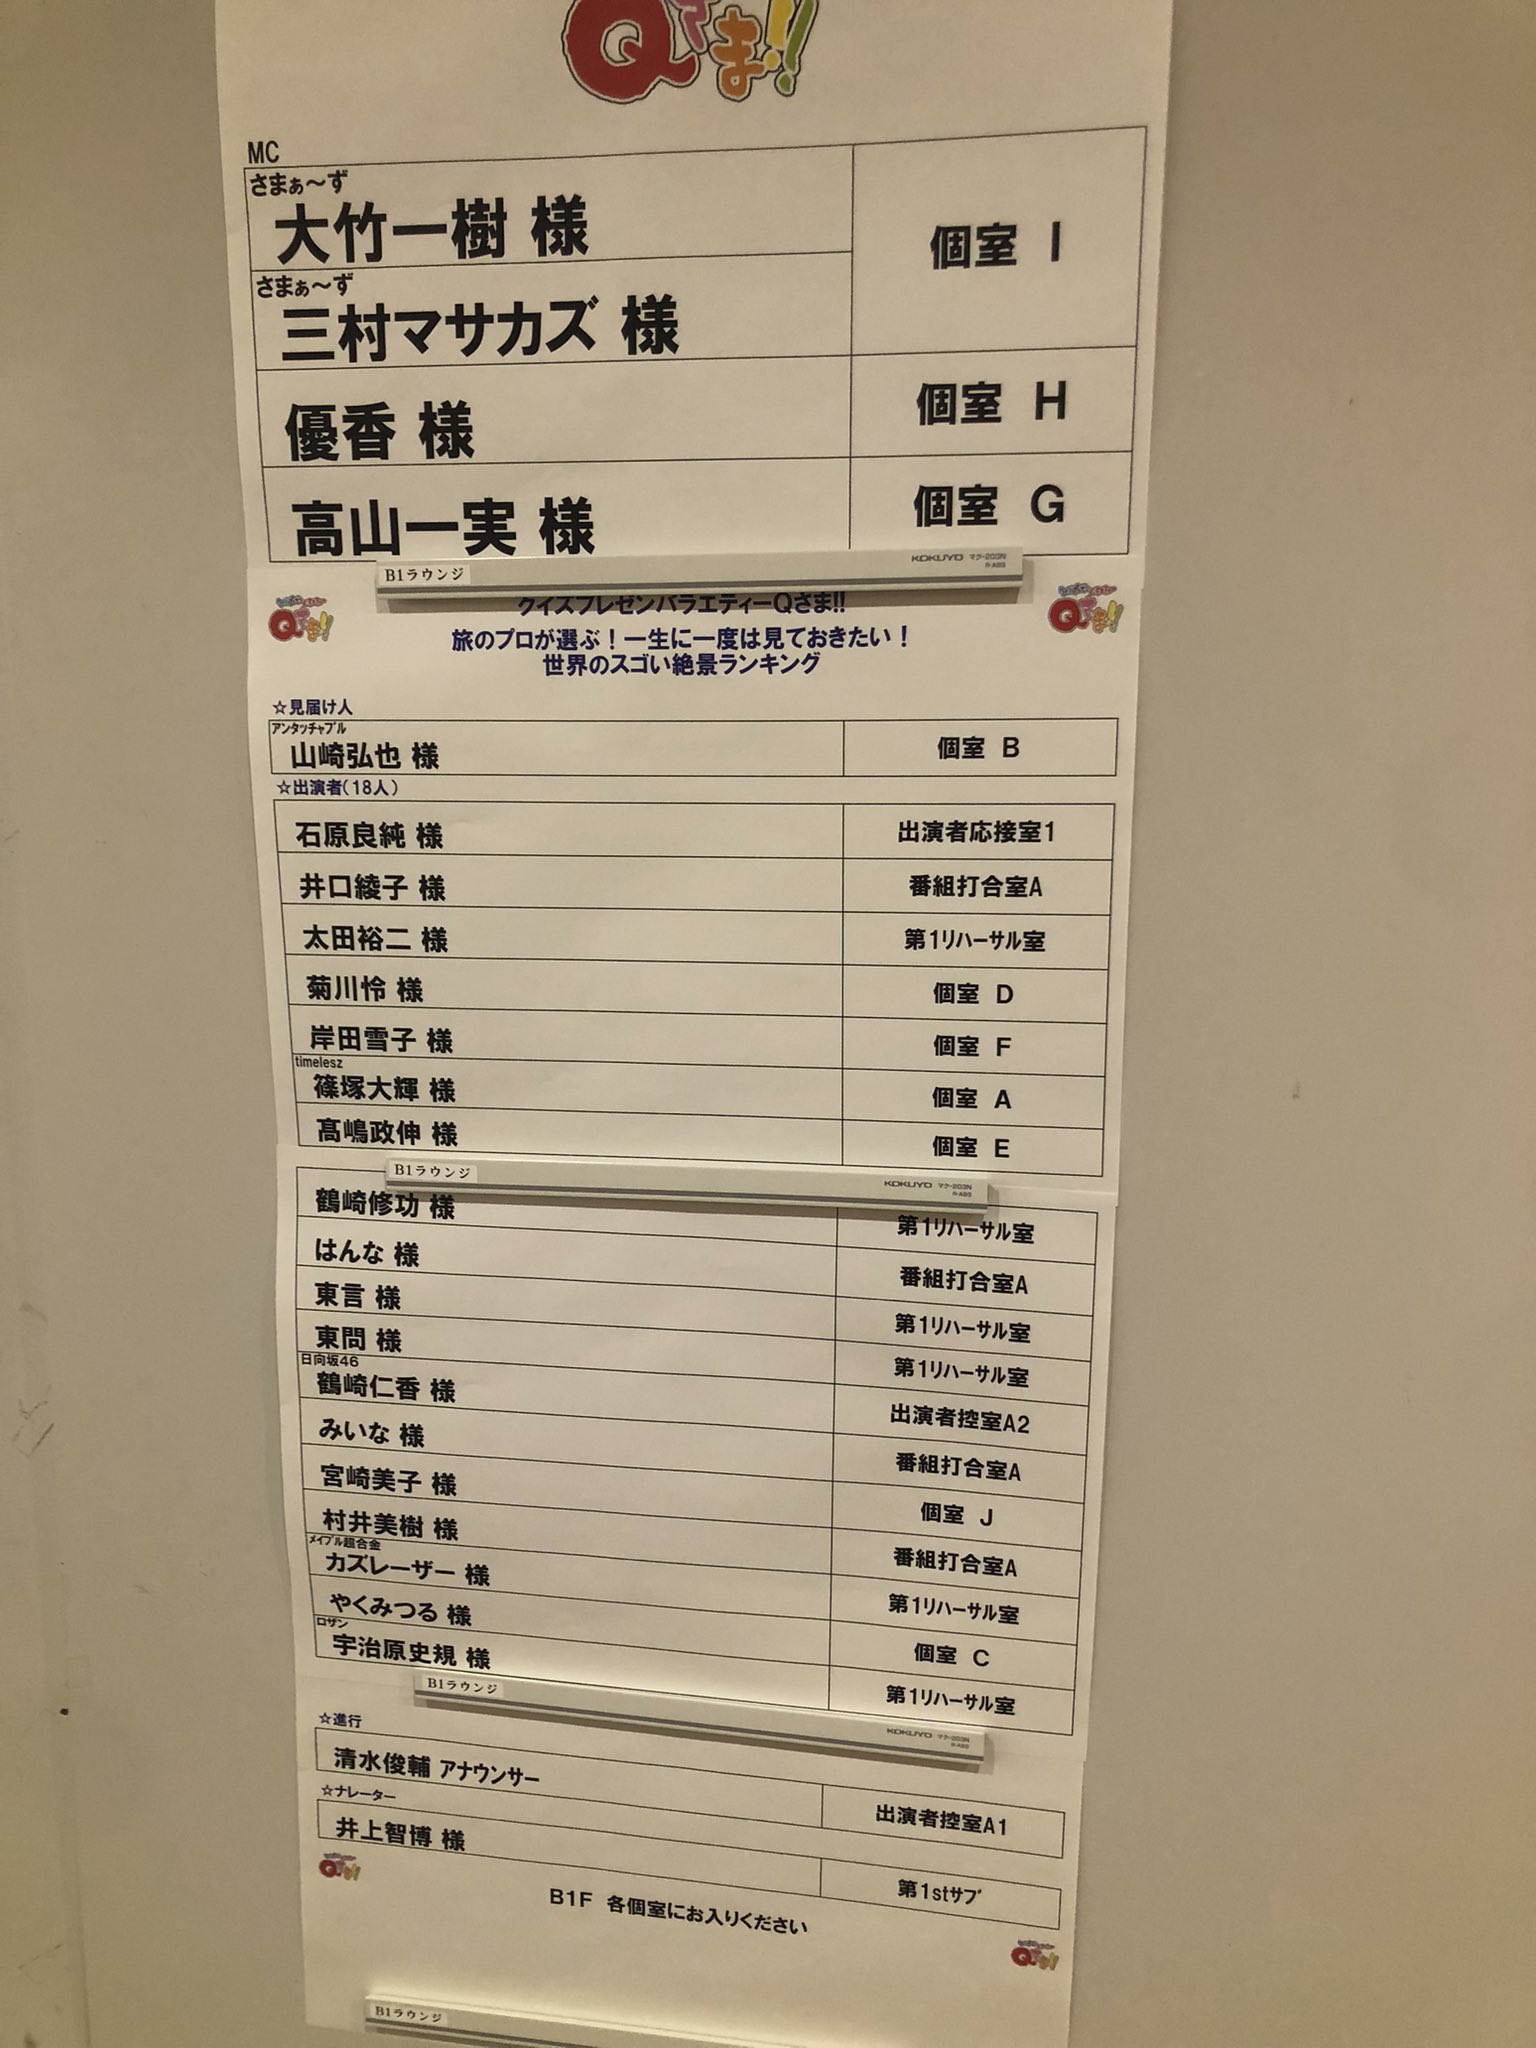 Qさま!!
MC
さまぁ～ず
大竹一樹 様
個室 I
さまぁ～ず
三村マサカズ 様
優香 様
個室 H
高山一実 様
個室 G
B1ラウンジ
KOKUYO マク-203N
R-ABS
Qさま!!
Qさま!!
クイズプレゼンバラエティーQさま!!
旅のプロが選ぶ！一生に一度は見ておきたい！
世界のスゴい絶景ランキング
☆見届け人
アンタッチャブル
山崎弘也 様
個室 B
☆出演者(18人)
石原良純 様
出演者応接室1
井口綾子 様
番組打合室A
太田裕二 様
第1リハーサル室
菊川怜 様
個室 D
岸田雪子 様
個室 F
timelesz
篠塚大輝 様
個室 A
髙嶋政伸 様
個室 E
B1ラウンジ
KOKUYO マク-203N
R-ABS
鶴崎修功 様
第1リハーサル室
はんな 様
番組打合室A
東言 様
第1リハーサル室
東問 様
第1リハーサル室
日向坂46
鶴崎仁香 様
出演者控室A2
みいな 様
番組打合室A
宮崎美子 様
個室 J
村井美樹 様
番組打合室A
メイプル超合金
カズレーザー 様
第1リハーサル室
やくみつる 様
個室 C
ロザン
宇治原史規 様
第1リハーサル室
B1ラウンジ
KOKUYO マク-203N
R-ABS
☆進行
清水俊輔 アナウンサー
出演者控室A1
☆ナレーター
井上智博 様
第1stサブ
B1F 各個室にお入りください
Qさま!!
Qさま!!
B1ラウンジ